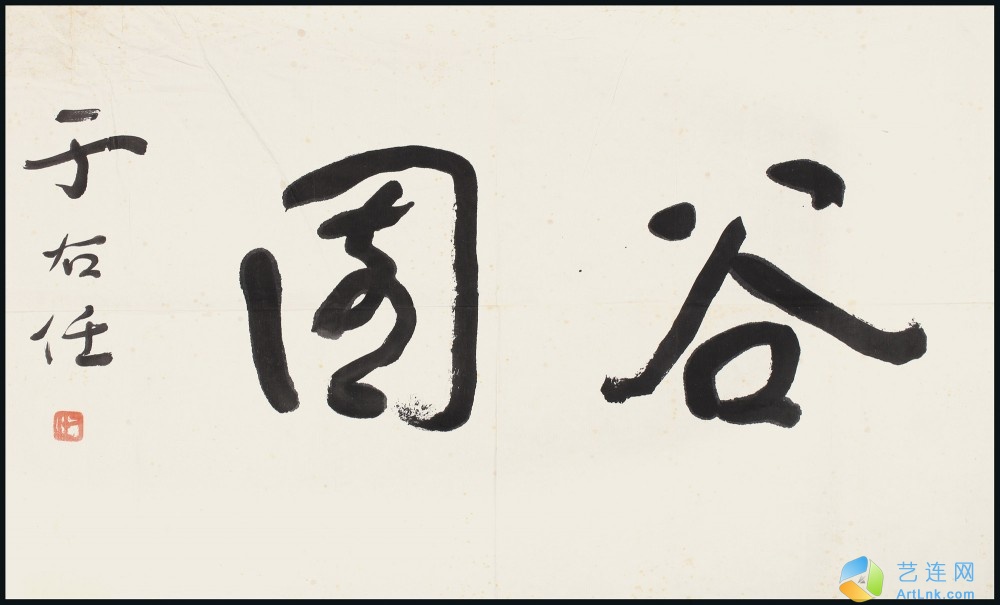 谷園
于右任
艺连网
ArtLnk.com